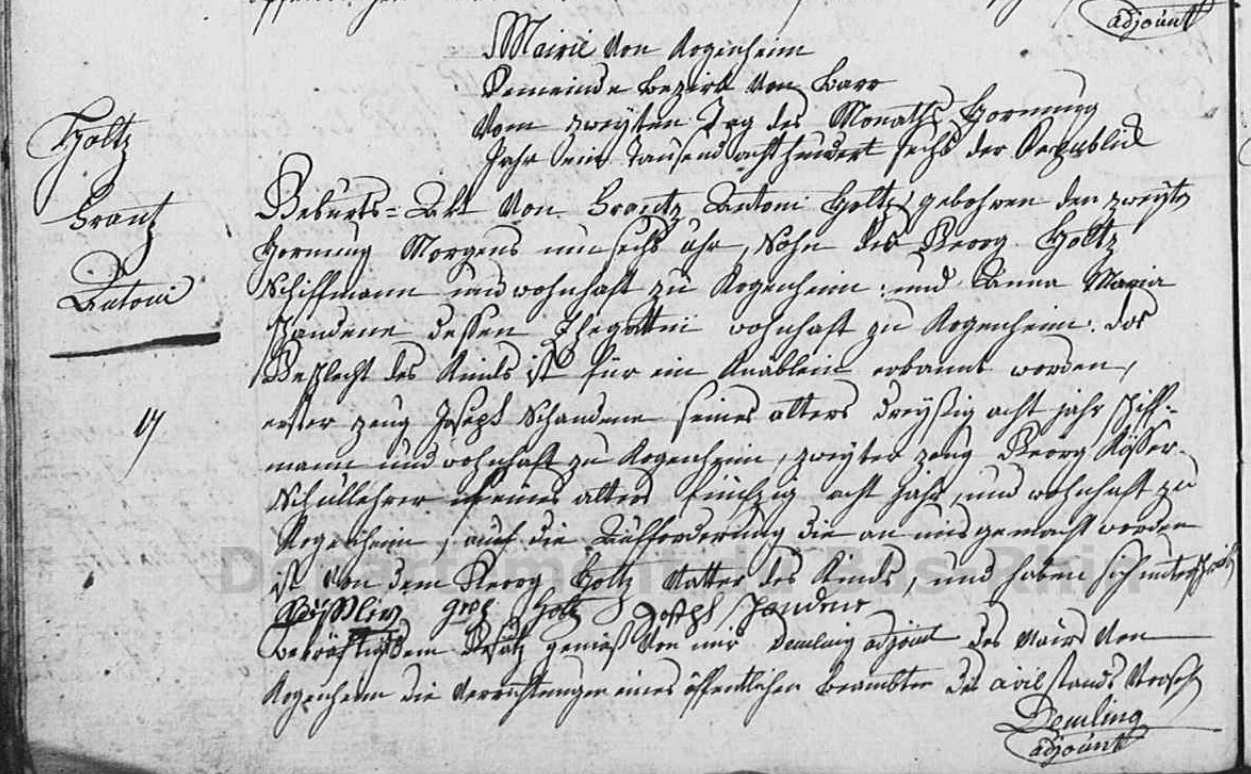 adjoint
Mairie von Kogenheim
Gemeinde Bezirk von Barr
Vom zweÿten Tag des Monaths Hornung
Jahr ein Tausend acht hundert sechs der Republick
Holtz
Frantz
Antoni
17
Geburts=Akt von Frantz Antoni Holtz gebohren den zweÿte
Hornung Morgens um sechs uhr, Sohn des Georg Holtz
Schiffmann und wohnhaft zu Kogenheim: und Anna Maria
Schandene dessen Ehegattin wohnhaft zu Kogenheim. das
Geschlecht des Kinds ist für ein Knäblein erkannt worden,
erster zeug Joseph Schandene seines alters dreÿßig acht jahr schiff=
mann und wohnhaft zu Kogenheim, zweÿter zeug Georg
Schullehrer seines alters fünfzig acht Jahr, und wohnhaft zu
Kogenheim, auf die Aufforderung die an uns gemacht worden
ist von dem Georg Holtz Vatter des Kinds, und haben sich
Holtz Joseph Schandene
dem Gesätz gemäß von mir Demling adjoint des Maire von
Kogenheim die Verrichtungen eines öffentlichen Beambten des Civilstands
Demling
adjoint
Département du Bas-Rhin